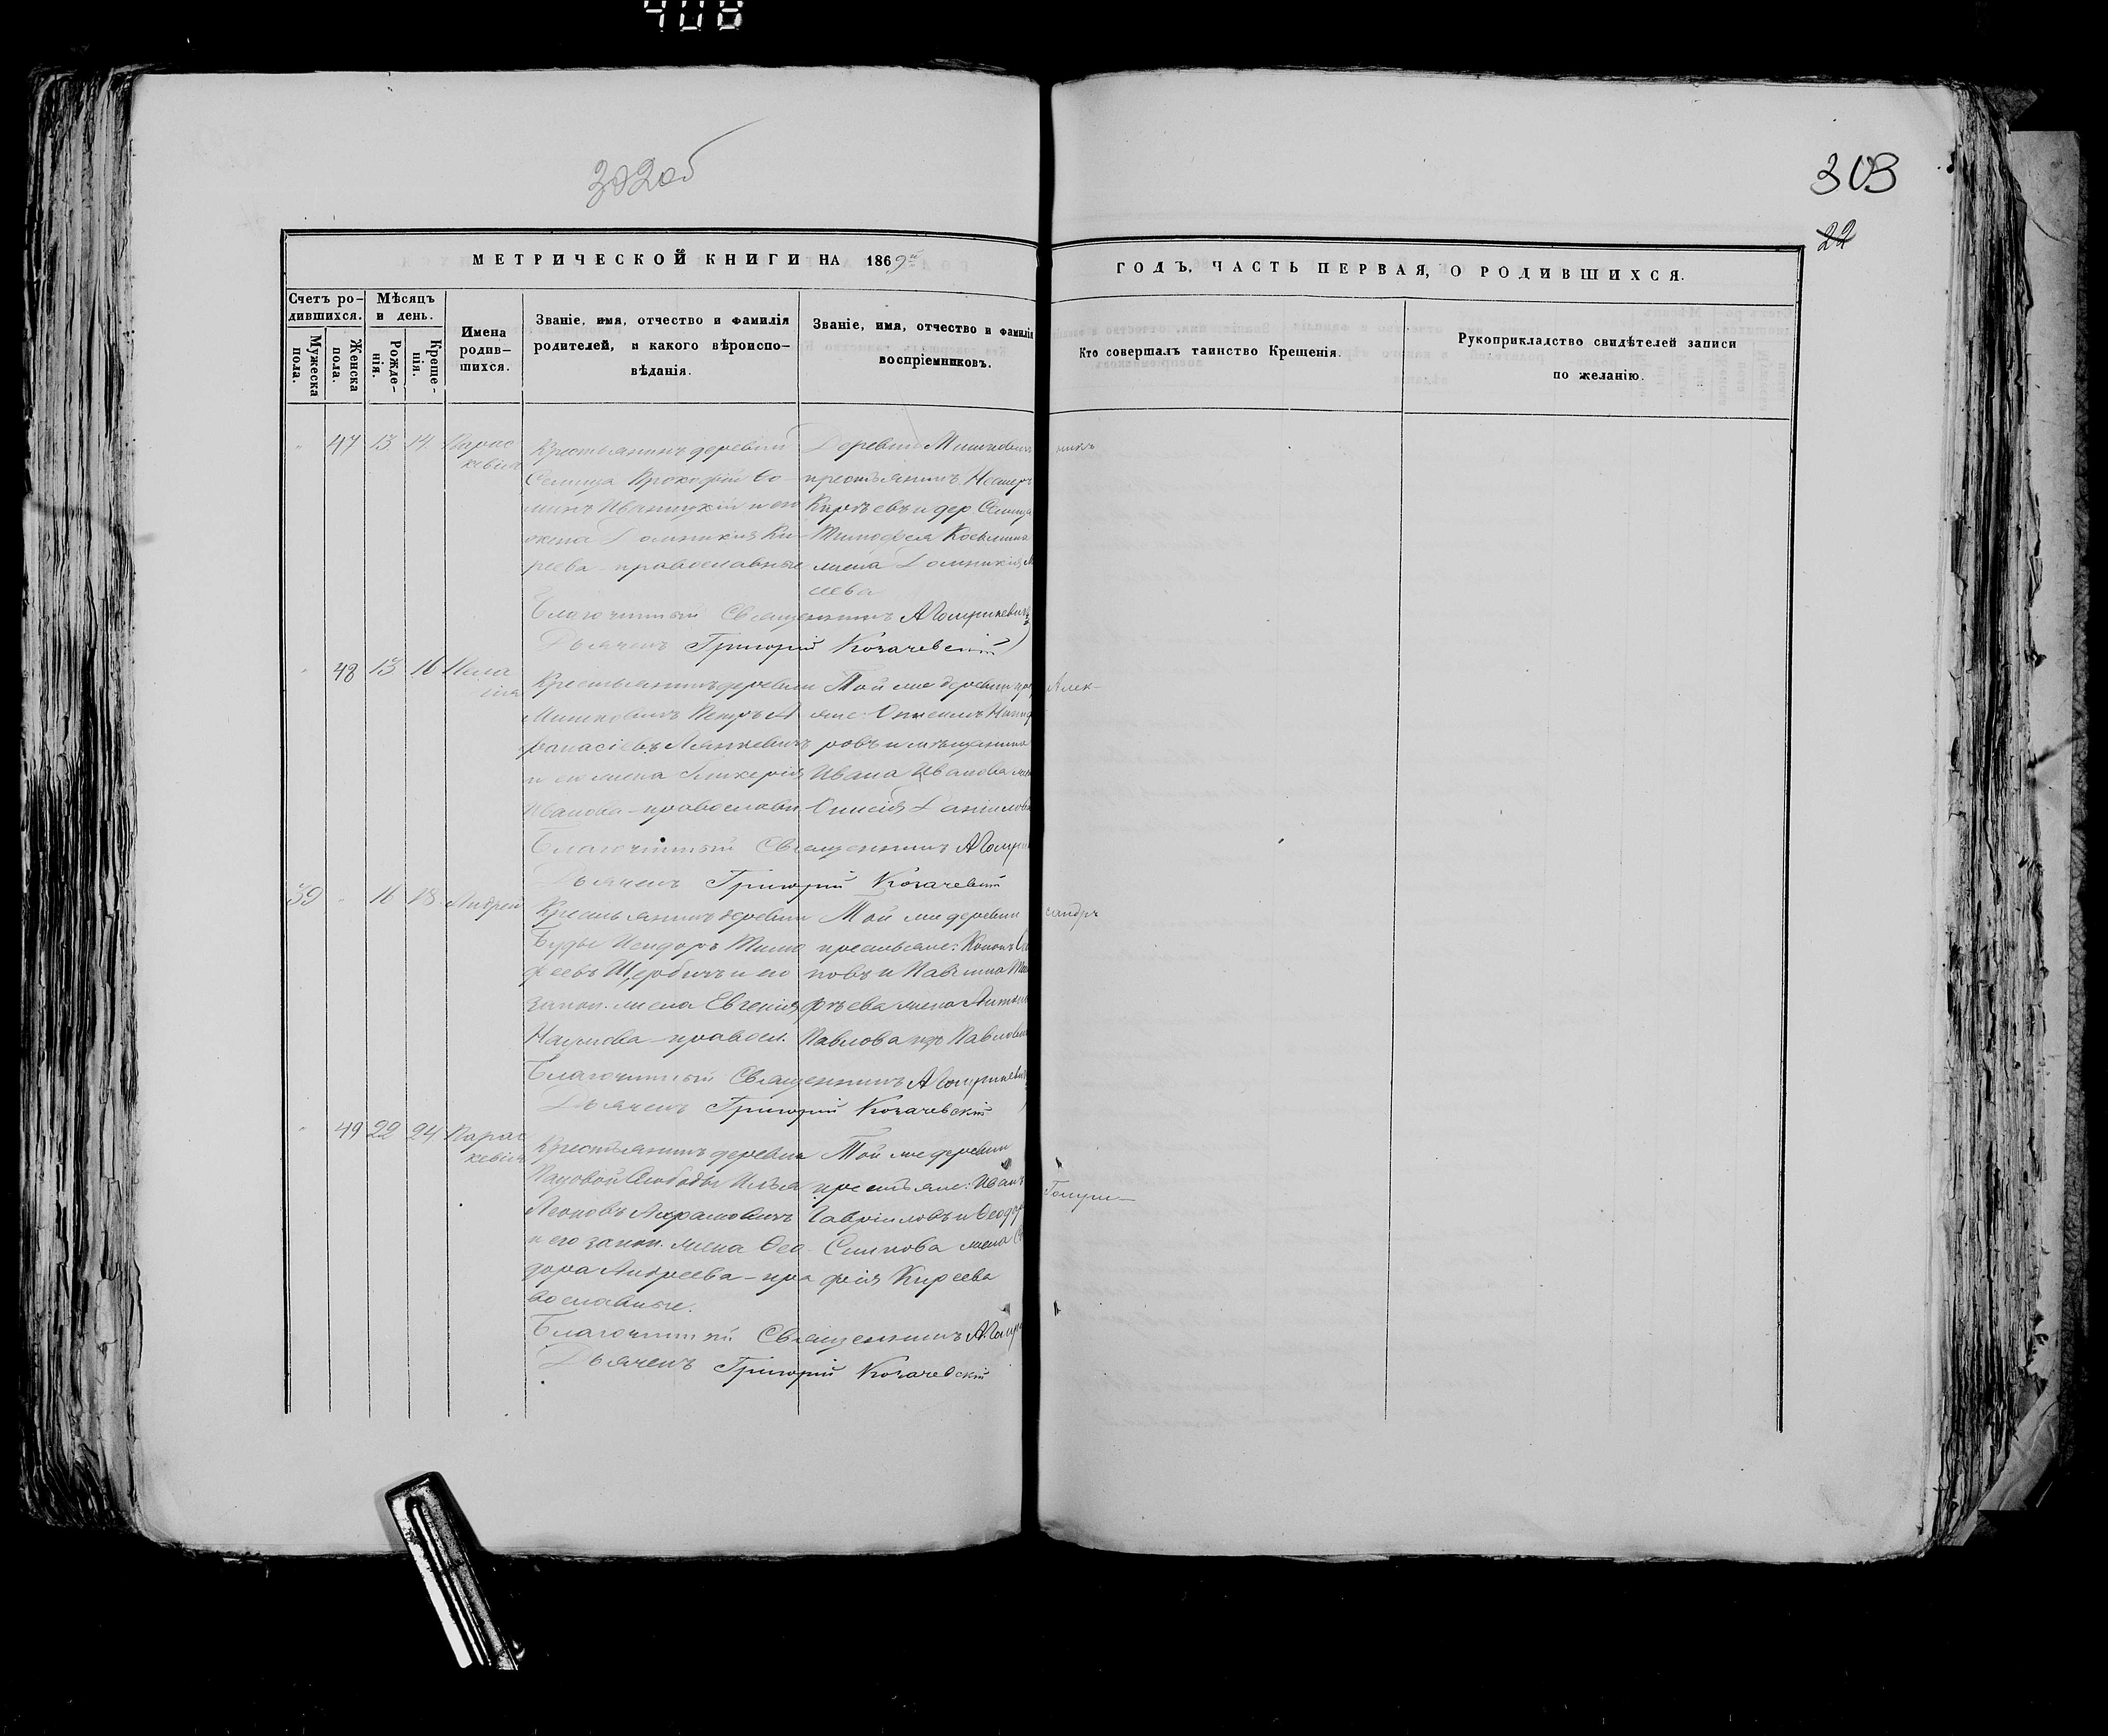 408
302об
303
22
МЕТРИЧЕСКОЙ КНИГИ НА 1869й
ГОДЪ, ЧАСТЬ ПЕРВАЯ, О РОДИВШИХСЯ.
Счетъ ро-
дившихся.
Мужеска
пола.
Женска
пола.
Мѣсяцъ
и день.
Рожде-
нія.
Креще-
нія.
Имена
родив-
шихся.
Званіе, имя, отчество и фамилія
родителей, и какого вѣроиспо-
вѣданія.
Званіе, имя, отчество и фамилія
воспріемниковъ.
Кто совершалъ таинство Крещенія.
Рукоприкладство свидѣтелей записи
по желанію.
" 47 13 14 Парас
кевія
Крестьянинъ деревни
Селища Прокофій Ѳо-
минъ Иваницкій и его
жена Домникія Ки-
реева православные
Деревни Мишковичъ
крестьянинъ Несторъ
Кирѣевъ и дер Селища
Тимофея Косьмина
жена Домникія
сеева
Благочинный Священникъ А Гомулкевичъ
Дьячекъ Григорій Козачевскій
никъ
" 48 13 16 Пела
гія
Крестьянинъ деревни
Мишковичъ Петръ А
ѳанасіевъ
и его жена Гликерія
Иванова православн
Той же деревни
яне:
ровъ и мѣщанина
Ивана Иванова
Анисія Данилова
Благочинный Священникъ А Гомул
Дьячекъ Григорій Козачевскій
Алек-
39 " 16 18 Андрей
Крестьянинъ деревни
Буды Исидоръ Тимо
феевъ Щербичъ и его
закон. жена Евгенія
Наумова правосл.
Той же деревни
крестьяне: Кононъ
новъ и Павлина
фѣева жена
Павлова изъ Павлович
Благочинный Священникъ А Гомулкевичъ
Дьячекъ Григорій Козачевскій
сандръ
" 49 22 24 Парас
кевія
Крестьянинъ деревни
Слободы Илья
Леоновъ Абрамовичъ
и его закон. жена Ѳео-
дора Андреева пра
вославные.
Той же деревни
крестьяне: Иванъ
Гавріиловъ и Ѳеодора
Семенова жена
фія Киреева
Благочинный Священникъ А. Гомул
Дьячекъ Григорій Козачевскій
Гомул-